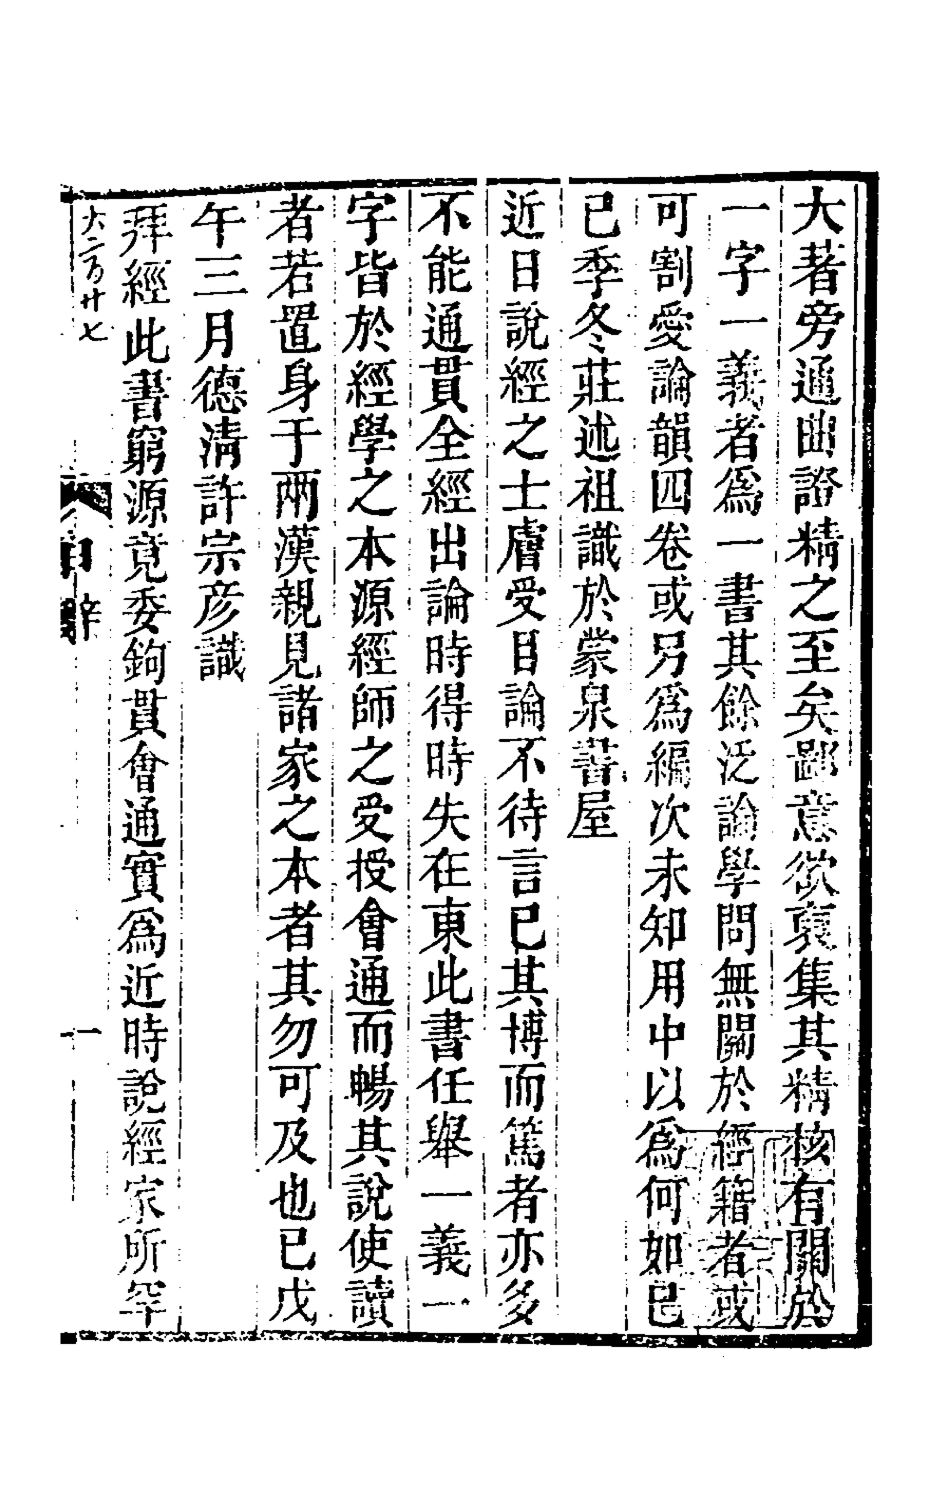 大著旁通曲證精之至矣鄙意欲裒集其精核有關於
一字一義者爲一書其餘泛論學問無關於經籍者或
可割愛論韻四卷或另爲編次未知用中以爲何如己
巳季冬莊述祖識於蒙泉書屋
近日說經之士膚受目論不待言已其博而篤者亦多
不能通貫全經出論時得時失在東此書任舉一義一
字皆於經學之本源經師之受授會通而暢其說使讀
者若置身于兩漢親見諸家之本者其勿可及也已戊
午三月德淸許宗彦識
拜經此書窮源竟委鉤貫會通實爲近時說經家所罕
大二百廿七
一